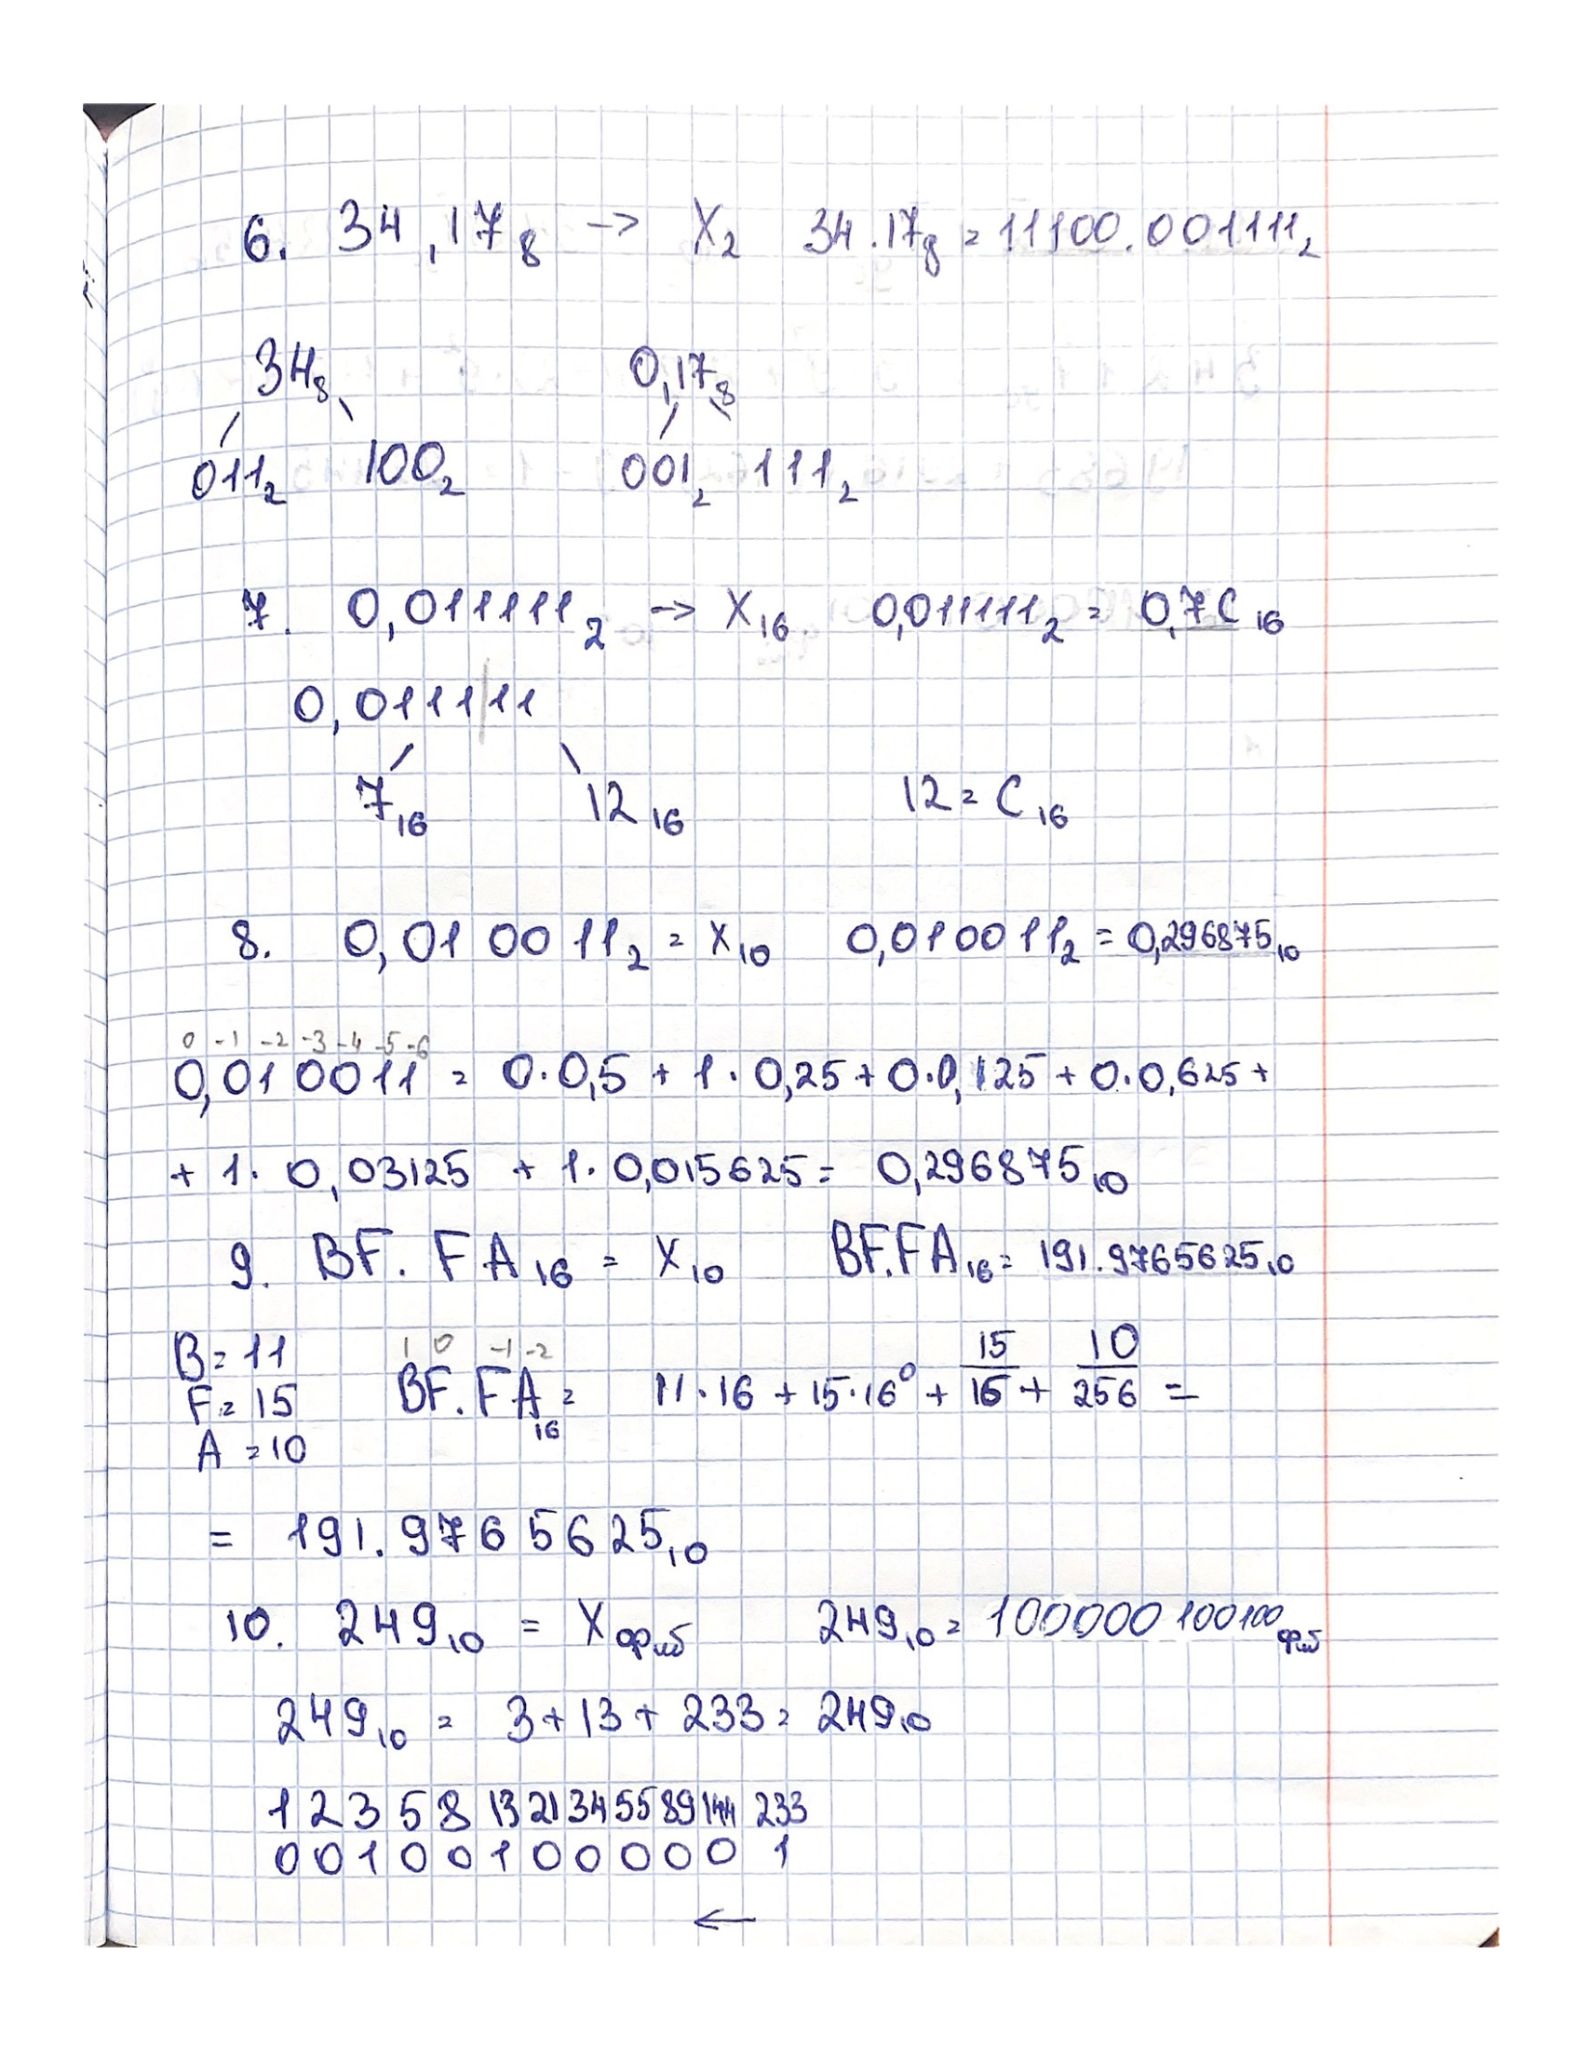 6. 34,17₈ -> X₂ 34.17₈ = 11100.001111₂
34₈ 0,17₈
011₂ 100₂ 001₂ 111₂
7. 0,011111₂ -> X₁₆. 0,011111₂ = 0,7C₁₆
0,0111|11
7₁₆ 12₁₆ 12 = C₁₆
8. 0,010011₂ = X₁₀ 0,010011₂ = 0,296875₁₀
0 -1 -2 -3 -4 -5 -6
0,010011 = 0·0,5 + 1·0,25 + 0·0,125 + 0·0,625 +
+ 1·0,03125 + 1·0,015625 = 0,296875₁₀
9. BF.FA₁₆ = X₁₀ BF.FA₁₆ = 191.9765625₁₀
1 0 -1 -2
B = 11 BF.FA₁₆ = 11·16 + 15·16⁰ + 15/16 + 10/256 =
F = 15
A = 10
= 191.9765625₁₀
10. 249₁₀ = Xфиб 249₁₀ = 100000100100фиб
249₁₀ = 3 + 13 + 233 = 249₁₀
1 2 3 5 8 13 21 34 55 89 144 233
0 0 1 0 0 1 0 0 0 0 0 1
←